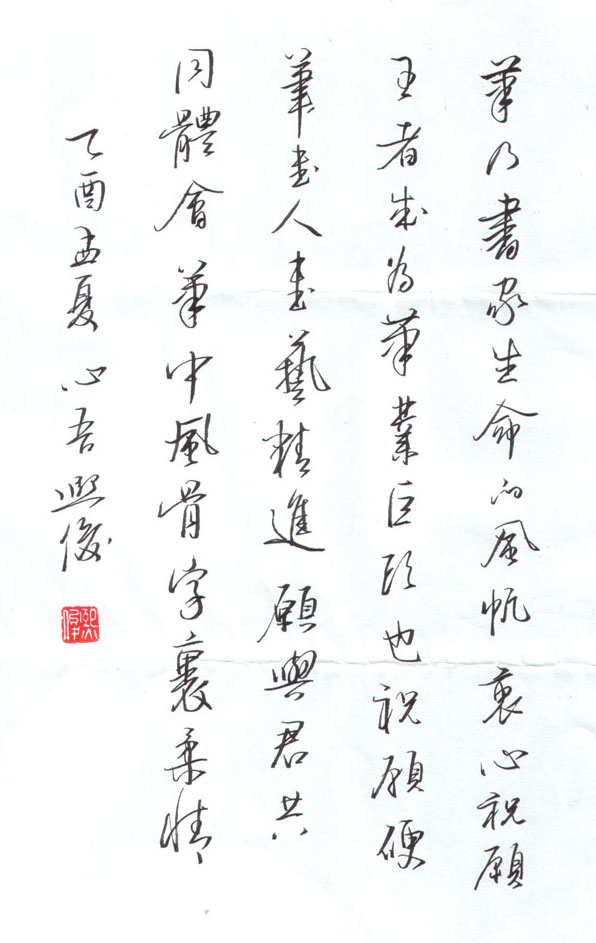 筆乃書家生命的風帆衷心祝願
王者成為筆業巨頭也祝願硬
筆書人書藝精進願與君共
同體會筆中風骨字裏柔情
乙酉孟夏心吾熙俊
熙俊